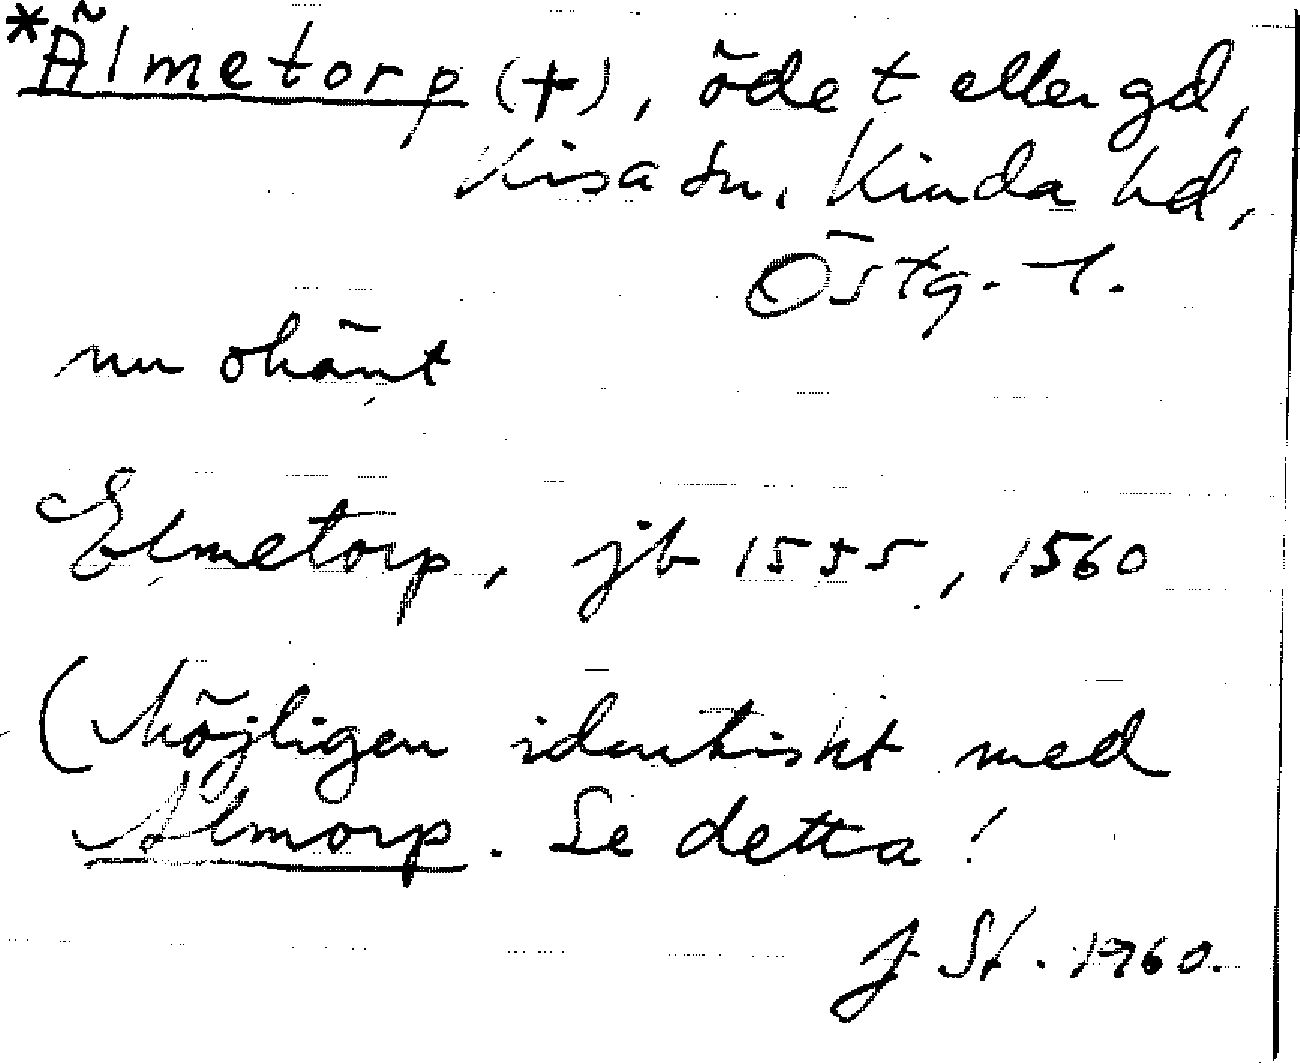 *Älmetorp (+), ödet eller gd,
Kisa sn. Kinda hd,
Östg. l.
nu okänt
Elmetorp, jb 1555, 1560
(Möjligen identiskt med
Almorp. Se detta!
J St. 1960.